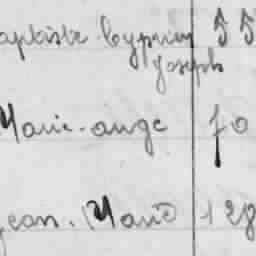 aptiste Cyprien 55
Joseph
Marie-ange 70
Jean-Marie 128